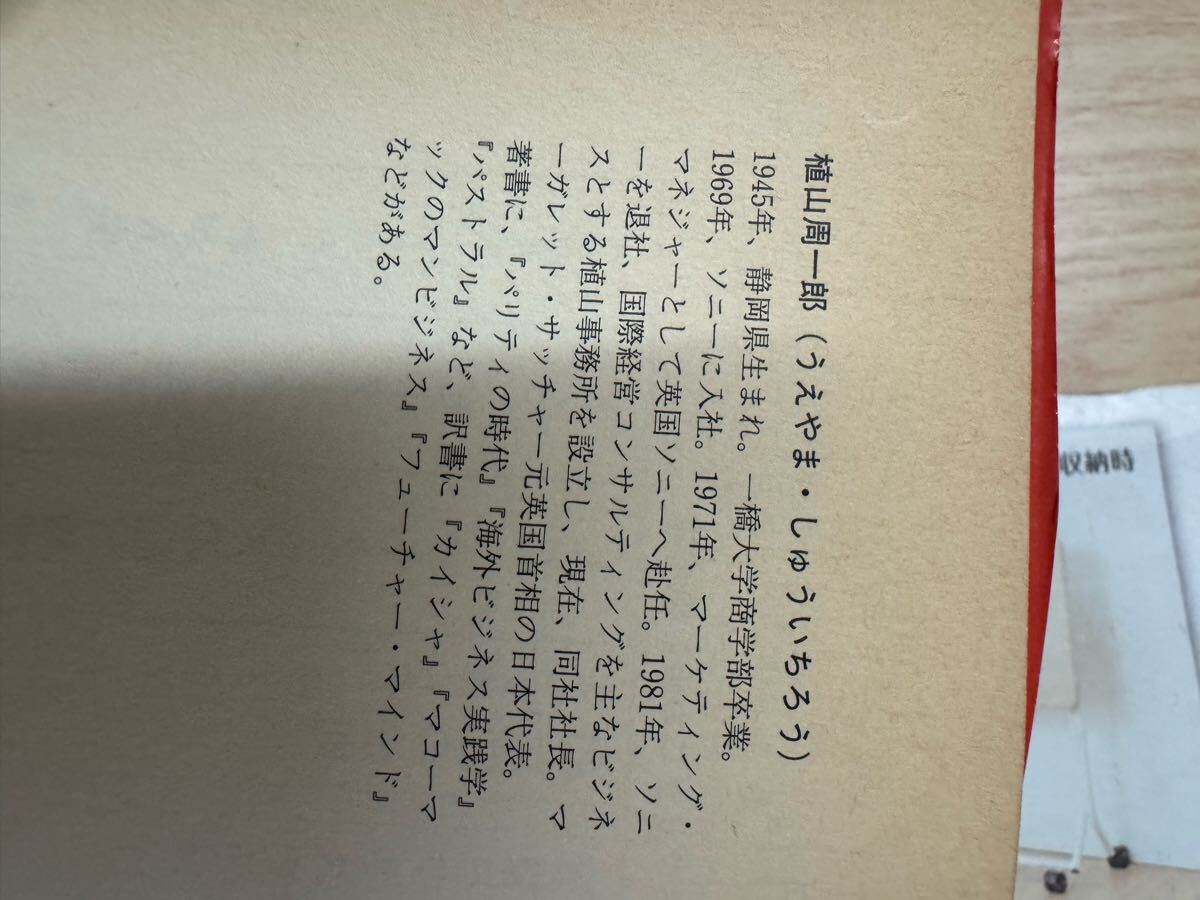 植山周一郎（うえやま・しゅういちろう）
1945年、静岡県生まれ。一橋大学商学部卒業。
1969年、ソニーに入社。1971年、マーケティング・
マネジャーとして英国ソニーへ赴任。1981年、ソニ
ーを退社、国際経営コンサルティングを主なビジネ
スとする植山事務所を設立し、現在、同社社長。マ
ーガレット・サッチャー元英国首相の日本代表。
著書に、『パリティの時代』『海外ビジネス実践学』
『パストラル』など、訳書に『カイシャ』『マコーマ
ックのマンビジネス』『フューチャー・マインド』
などがある。
収納時